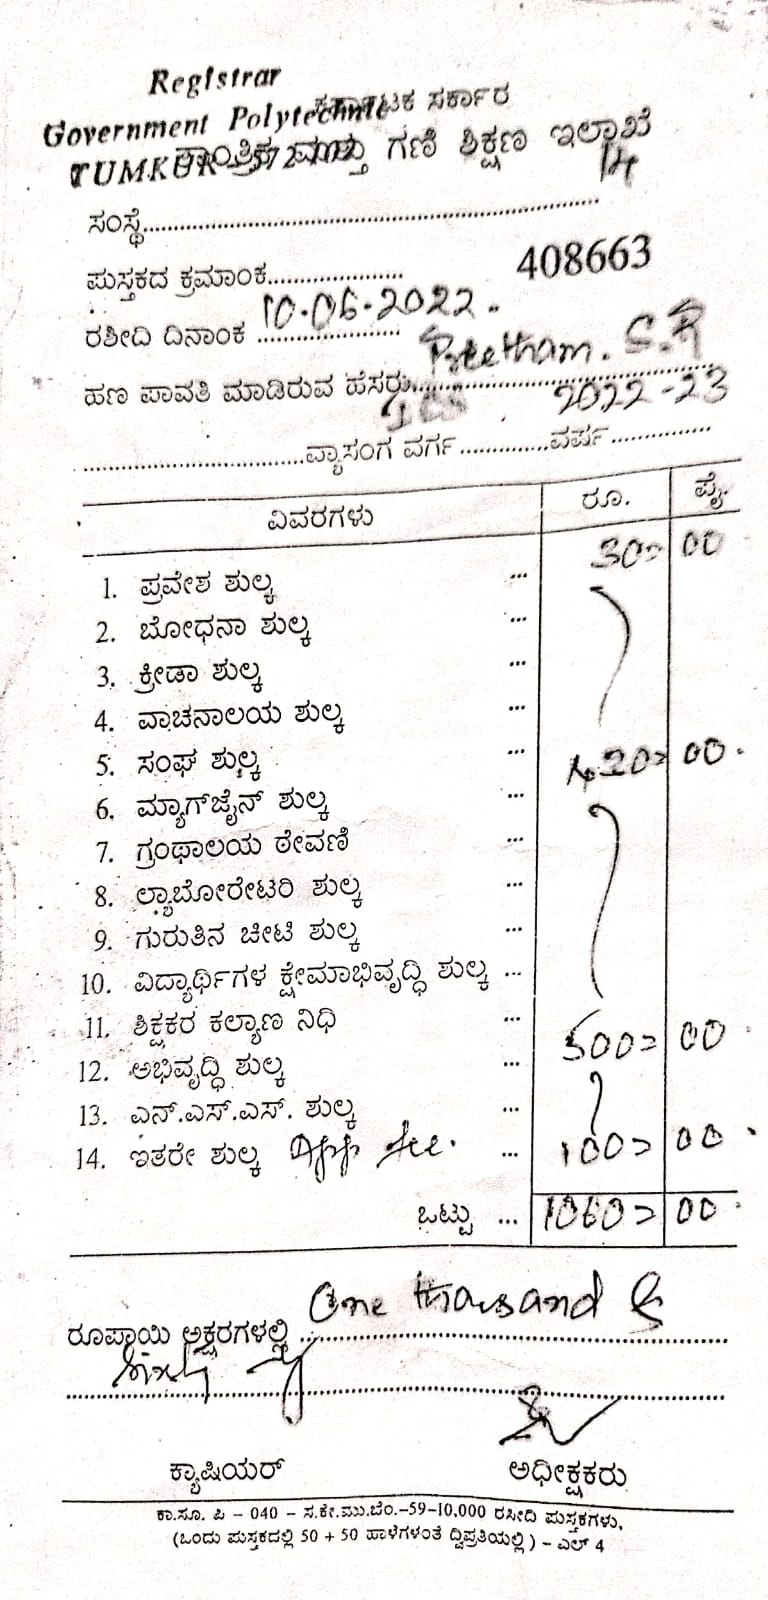 Registrar
Government Polytechnic
ಕರ್ನಾಟಕ ಸರ್ಕಾರ
TUMKUR
ತಾಂತ್ರಿಕ ಮತ್ತು ಗಣಿ ಶಿಕ್ಷಣ ಇಲಾಖೆ
ಸಂಸ್ಥೆ..........
ಪುಸ್ತಕದ ಕ್ರಮಾಂಕ.......... 408663
ರಶೀದಿ ದಿನಾಂಕ 10.06.2022.
ಹಣ ಪಾವತಿ ಮಾಡಿರುವ ಹೆಸರು.......... Preetham. S.R
2022-23
..........ವ್ಯಾಸಂಗ ವರ್ಗ..........ವರ್ಷ..........
ವಿವರಗಳು ರೂ. ಪೈ.
1. ಪ್ರವೇಶ ಶುಲ್ಕ ... 30= 00
2. ಬೋಧನಾ ಶುಲ್ಕ ...
3. ಕ್ರೀಡಾ ಶುಲ್ಕ ...
4. ವಾಚನಾಲಯ ಶುಲ್ಕ ...
5. ಸಂಘ ಶುಲ್ಕ ... 420= 00
6. ಮ್ಯಾಗ್‌ಜೈನ್ ಶುಲ್ಕ ...
7. ಗ್ರಂಥಾಲಯ ಠೇವಣಿ ...
8. ಲ್ಯಾಬೋರೇಟರಿ ಶುಲ್ಕ ...
9. ಗುರುತಿನ ಚೀಟಿ ಶುಲ್ಕ ...
10. ವಿದ್ಯಾರ್ಥಿಗಳ ಕ್ಷೇಮಾಭಿವೃದ್ಧಿ ಶುಲ್ಕ ...
11. ಶಿಕ್ಷಕರ ಕಲ್ಯಾಣ ನಿಧಿ ... 500= 00
12. ಅಭಿವೃದ್ಧಿ ಶುಲ್ಕ ...
13. ಎನ್.ಎಸ್.ಎಸ್. ಶುಲ್ಕ ...
14. ಇತರೇ ಶುಲ್ಕ App fee. ... 100= 00
ಒಟ್ಟು ... 1060= 00
ರೂಪಾಯಿ ಅಕ್ಷರಗಳಲ್ಲಿ One thousand &
sixty
ಕ್ಯಾಷಿಯರ್ ಅಧೀಕ್ಷಕರು
ಕಾ.ಸೂ. ಪಿ – 040 – ಸ.ಕೇ.ಮು.ಬೆಂ.–59–10,000 ರಸೀದಿ ಪುಸ್ತಕಗಳು,
(ಒಂದು ಪುಸ್ತಕದಲ್ಲಿ 50 + 50 ಹಾಳೆಗಳಂತೆ ದ್ವಿಪ್ರತಿಯಲ್ಲಿ) – ಎಲ್ 4